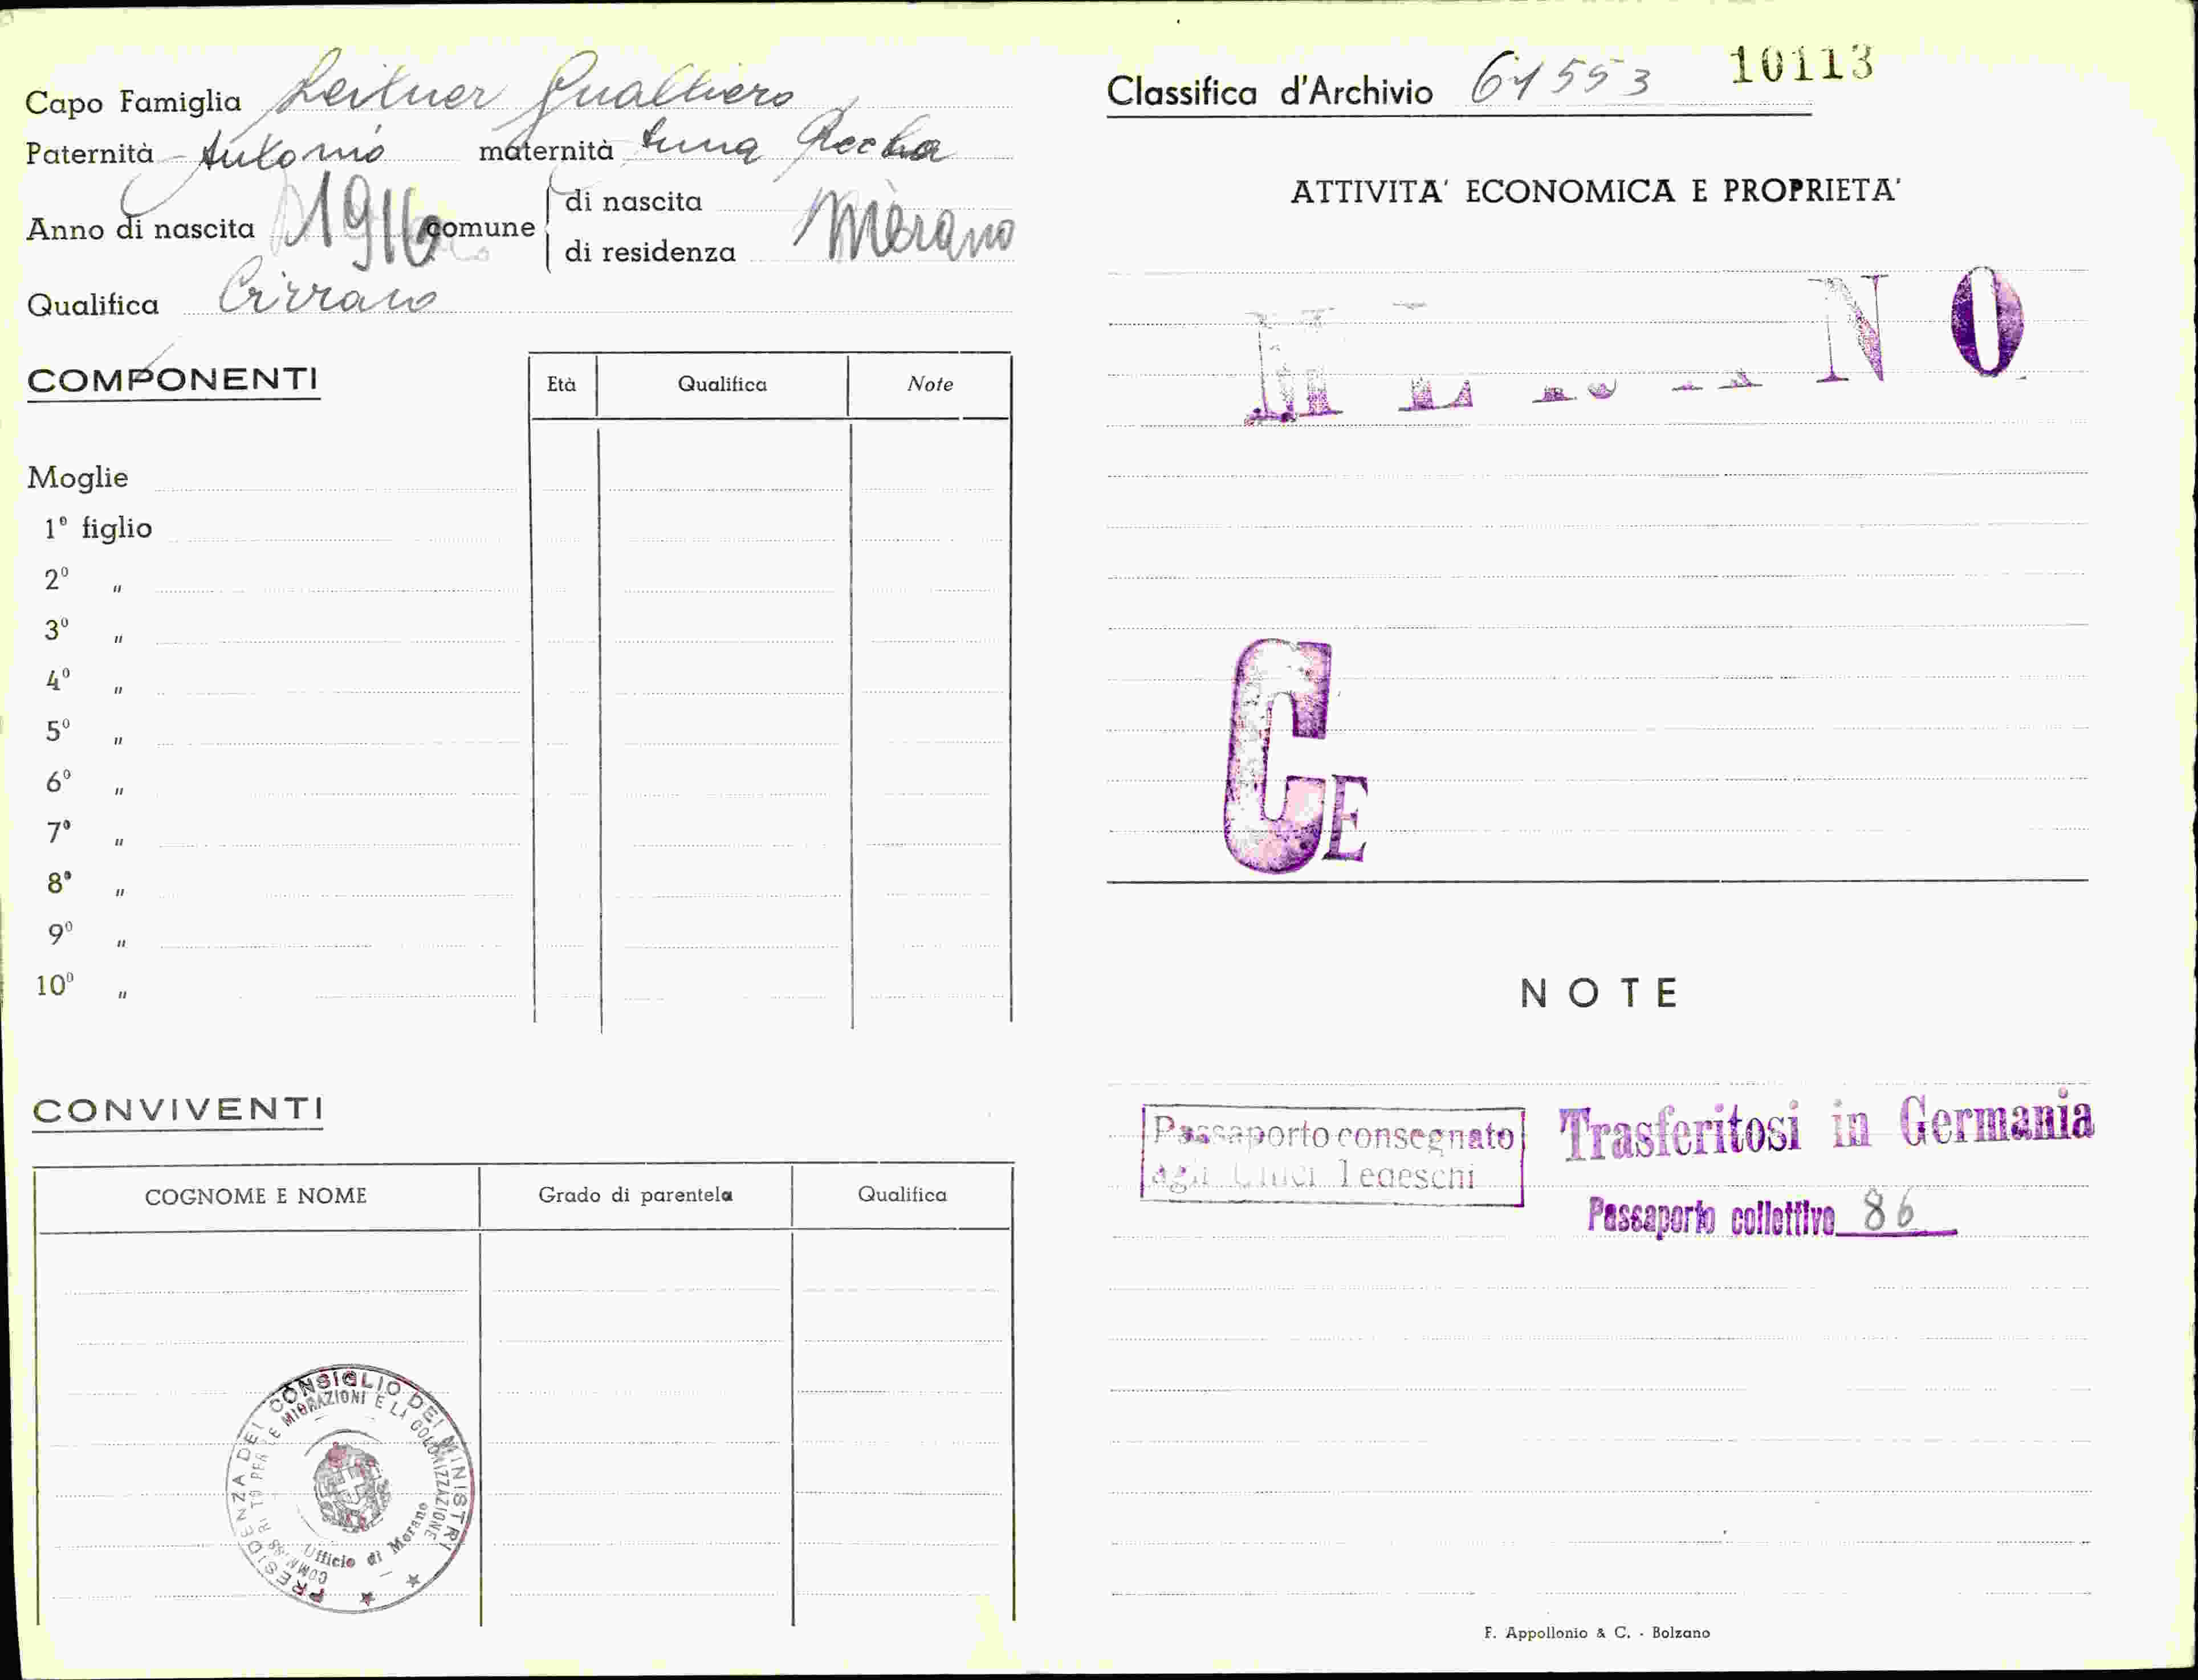 Capo Famiglia Leitner Gualtiero
Paternità Antonio maternità Anna
Anno di nascita 1916 comune di nascita
di residenza Merano
Qualifica
COMPONENTI
Età Qualifica Note
Moglie
1º figlio
2º "
3º "
4º "
5º "
6º "
7º "
8º "
9º "
10º "
CONVIVENTI
COGNOME E NOME Grado di parentela Qualifica
PRESIDENZA DEL CONSIGLIO DEI MINISTRI
PER LE MIGRAZIONI E LA COLONIZZAZIONE
Ufficio di Merano
Classifica d'Archivio 61553 10113
ATTIVITA' ECONOMICA E PROPRIETA'
CE
NOTE
Passaporto consegnato
Tedeschi
Trasferitosi in Germania
Passaporto collettivo 86
F. Appollonio & C. - Bolzano